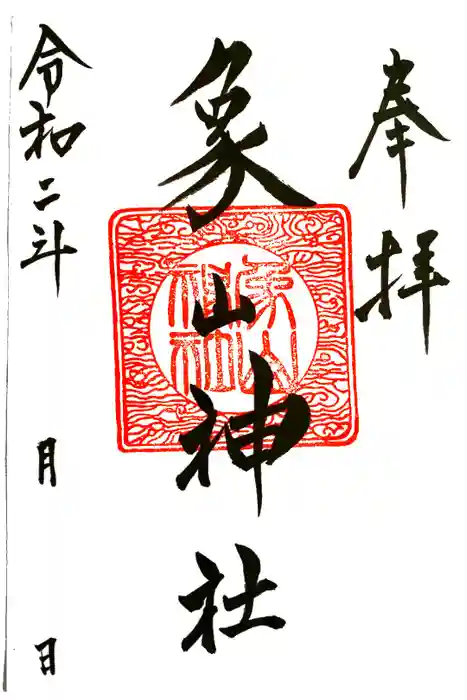 奉拝
象山神社
象山神社
令和二年 月 日